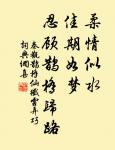 柔情似水
佳期如梦
忍顾鹊桥归路
秦观鹊桥仙纤云弄巧
词典网集